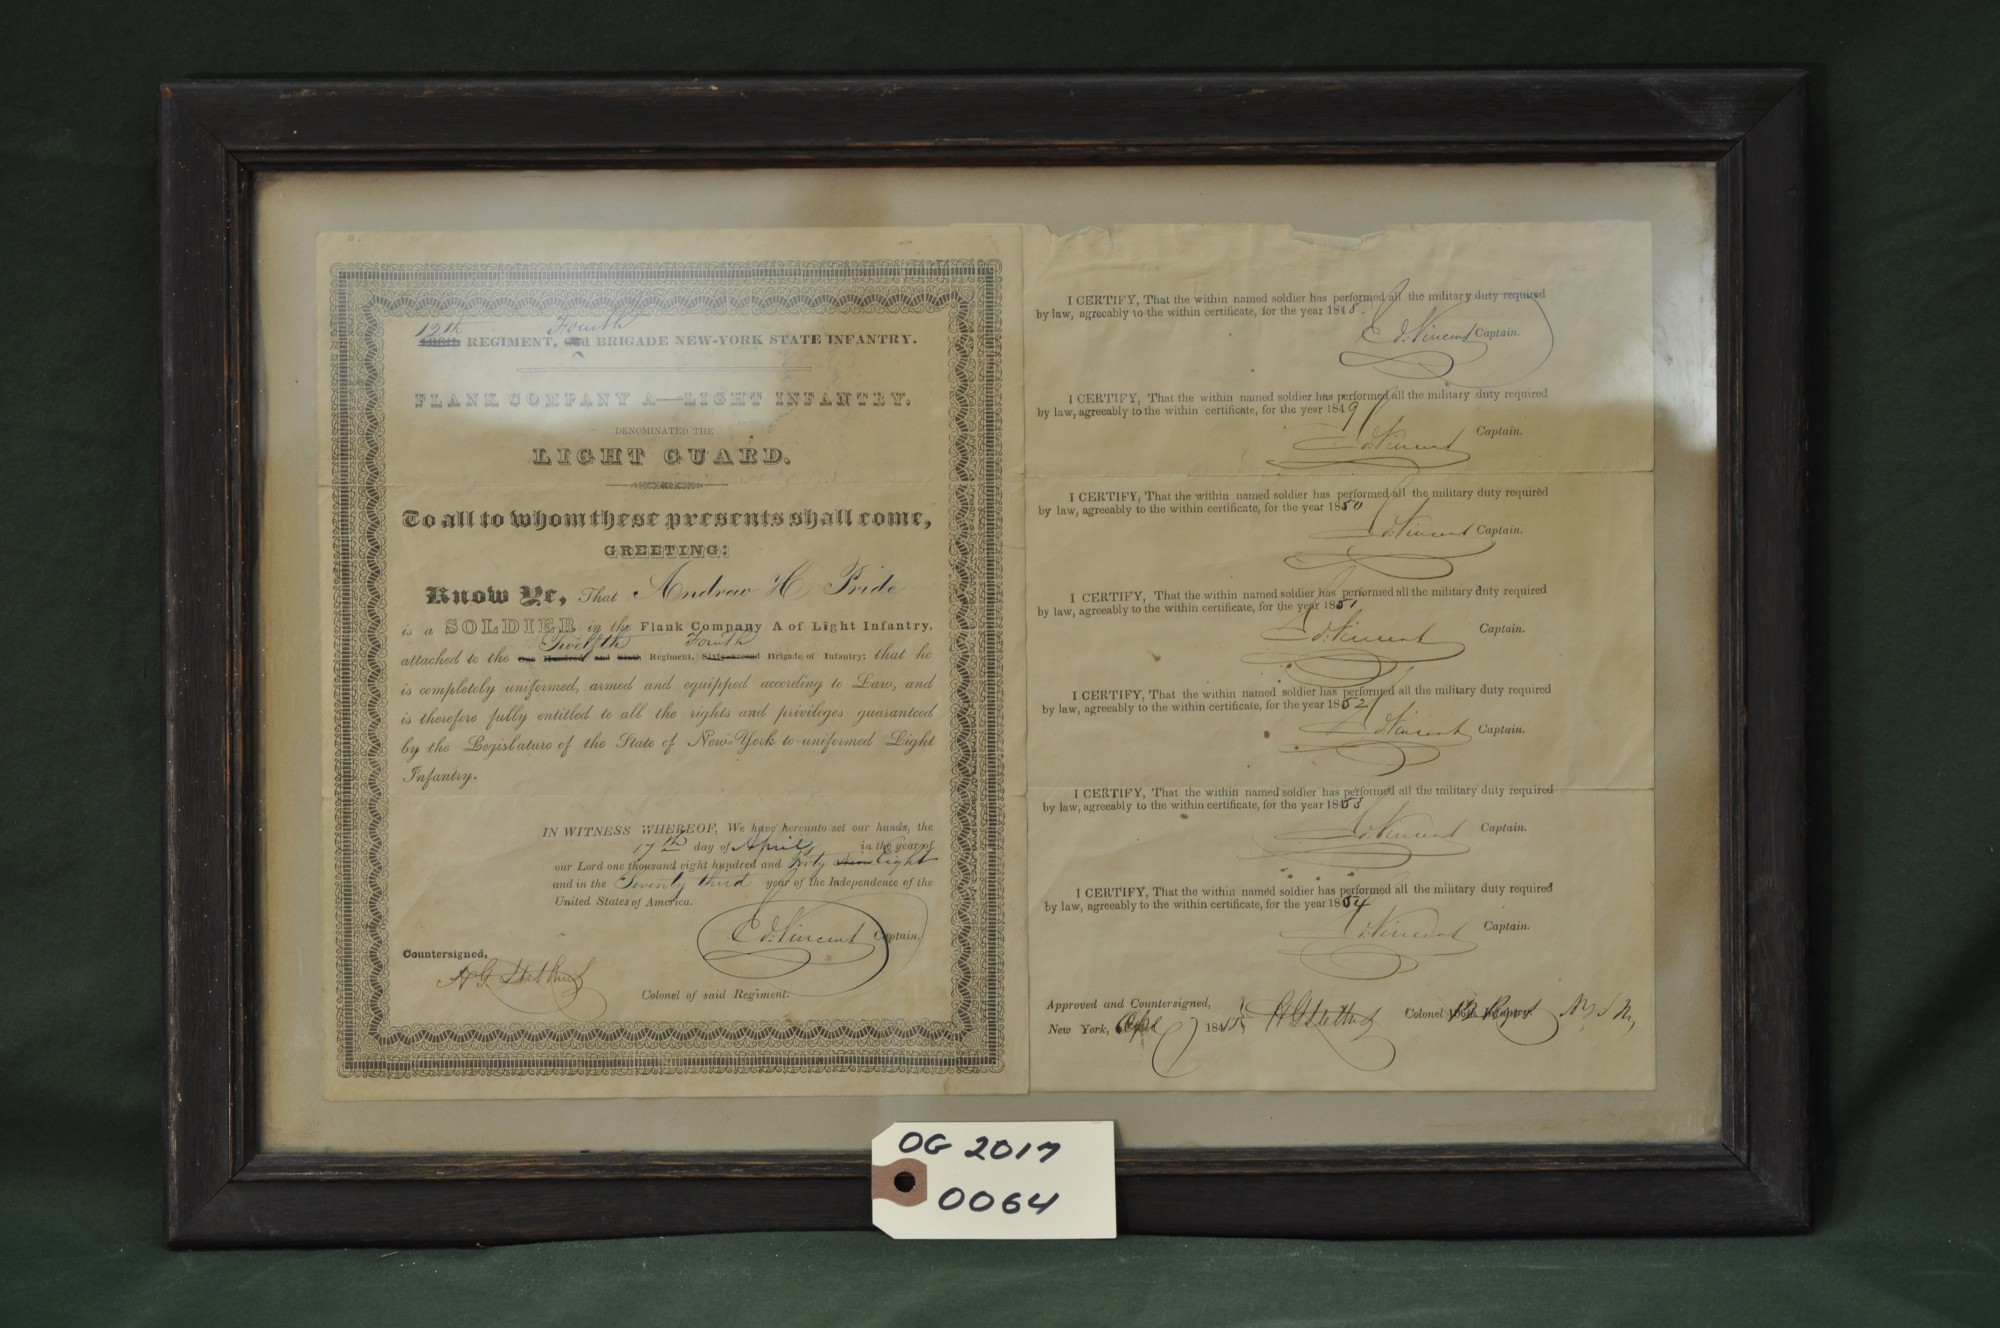 12th Fourth
106th REGIMENT, BRIGADE NEW-YORK STATE INFANTRY.
FLANK COMPANY A—LIGHT INFANTRY.
DENOMINATED THE
LIGHT GUARD.
To all to whom these presents shall come,
GREETING:
Know Ye, That Andrew H Pride
is a SOLDIER in the Flank Company A of Light Infantry,
Twelfth Fourth
attached to the One Hundred and Sixth Regiment, Sixty-second Brigade of Infantry; that he
is completely uniformed, armed and equipped according to Law, and
is therefore fully entitled to all the rights and privileges guaranteed
by the Legislature of the State of New-York to uniformed Light
Infantry.
IN WITNESS WHEREOF, We have hereunto set our hands, the
17th day of April in the year of
our Lord one thousand eight hundred and forty Eight
and in the Seventy third year of the Independence of the
United States of America.
Ed. Vincent Captain.
Countersigned,
H G Stebbins
Colonel of said Regiment.
I CERTIFY, That the within named soldier has performed all the military duty required
by law, agreeably to the within certificate, for the year 1848.
Ed. Vincent Captain.
I CERTIFY, That the within named soldier has performed all the military duty required
by law, agreeably to the within certificate, for the year 1849
Ed. Vincent Captain.
I CERTIFY, That the within named soldier has performed all the military duty required
by law, agreeably to the within certificate, for the year 1850
Ed. Vincent Captain.
I CERTIFY, That the within named soldier has performed all the military duty required
by law, agreeably to the within certificate, for the year 1851
Ed. Vincent Captain.
I CERTIFY, That the within named soldier has performed all the military duty required
by law, agreeably to the within certificate, for the year 1852
Ed. Vincent Captain.
I CERTIFY, That the within named soldier has performed all the military duty required
by law, agreeably to the within certificate, for the year 1853
Ed. Vincent Captain.
I CERTIFY, That the within named soldier has performed all the military duty required
by law, agreeably to the within certificate, for the year 1854
Ed. Vincent Captain.
Approved and Countersigned,
New York, 1855 H G Stebbins Colonel 106th Infantry 12 Regt
OG 2017
0064